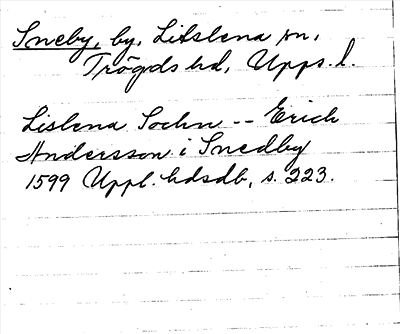 Sneby, by, Litslena sn,
Trögds hd, Upps. l.
Lislena Sochn -- Erich
Andersson i Snedby
1599 Uppl. hdsdb, s. 223.